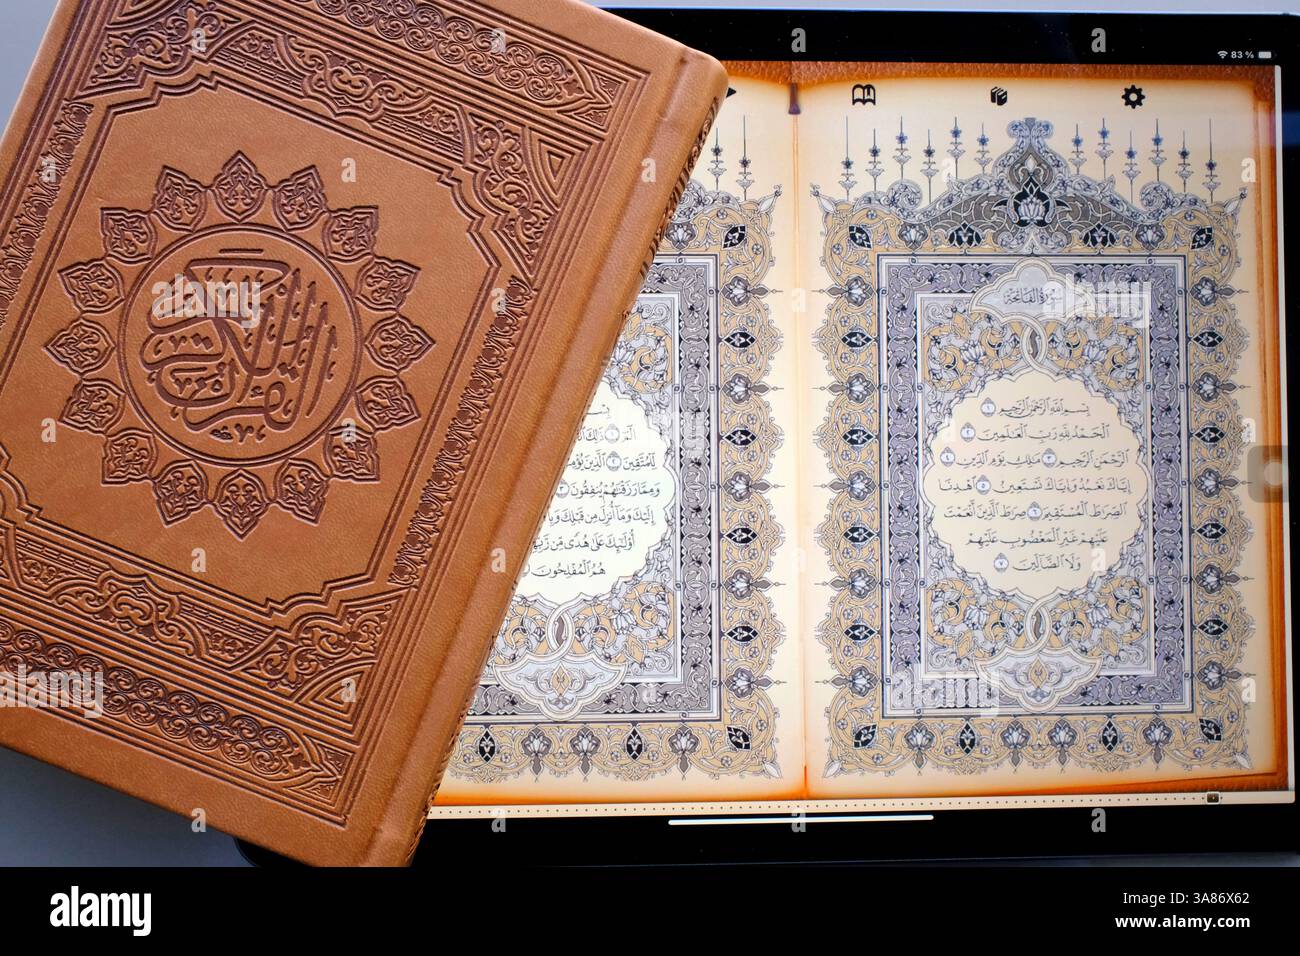 القرآن الكريم
83 %
سورة الفاتحة
بِسْمِ ٱللَّهِ ٱلرَّحْمَٰنِ ٱلرَّحِيمِ ١
ٱلْحَمْدُ لِلَّهِ رَبِّ ٱلْعَٰلَمِينَ ٢
ٱلرَّحْمَٰنِ ٱلرَّحِيمِ ٣ مَٰلِكِ يَوْمِ ٱلدِّينِ ٤
إِيَّاكَ نَعْبُدُ وَإِيَّاكَ نَسْتَعِينُ ٥ ٱهْدِنَا
ٱلصِّرَٰطَ ٱلْمُسْتَقِيمَ ٦ صِرَٰطَ ٱلَّذِينَ أَنْعَمْتَ
عَلَيْهِمْ غَيْرِ ٱلْمَغْضُوبِ عَلَيْهِمْ
وَلَا ٱلضَّآلِّينَ ٧
بِسْمِ
الٓمٓ ١ ذَٰلِكَ
لِّلْمُتَّقِينَ ٢ ٱلَّذِينَ
وَمِمَّا رَزَقْنَٰهُمْ يُنفِقُونَ ٣
إِلَيْكَ وَمَآ أُنزِلَ مِن قَبْلِكَ
أُو۟لَٰٓئِكَ عَلَىٰ هُدًى مِّن
هُمُ ٱلْمُفْلِحُونَ
alamy
Image ID: 3A86X62
www.alamy.com